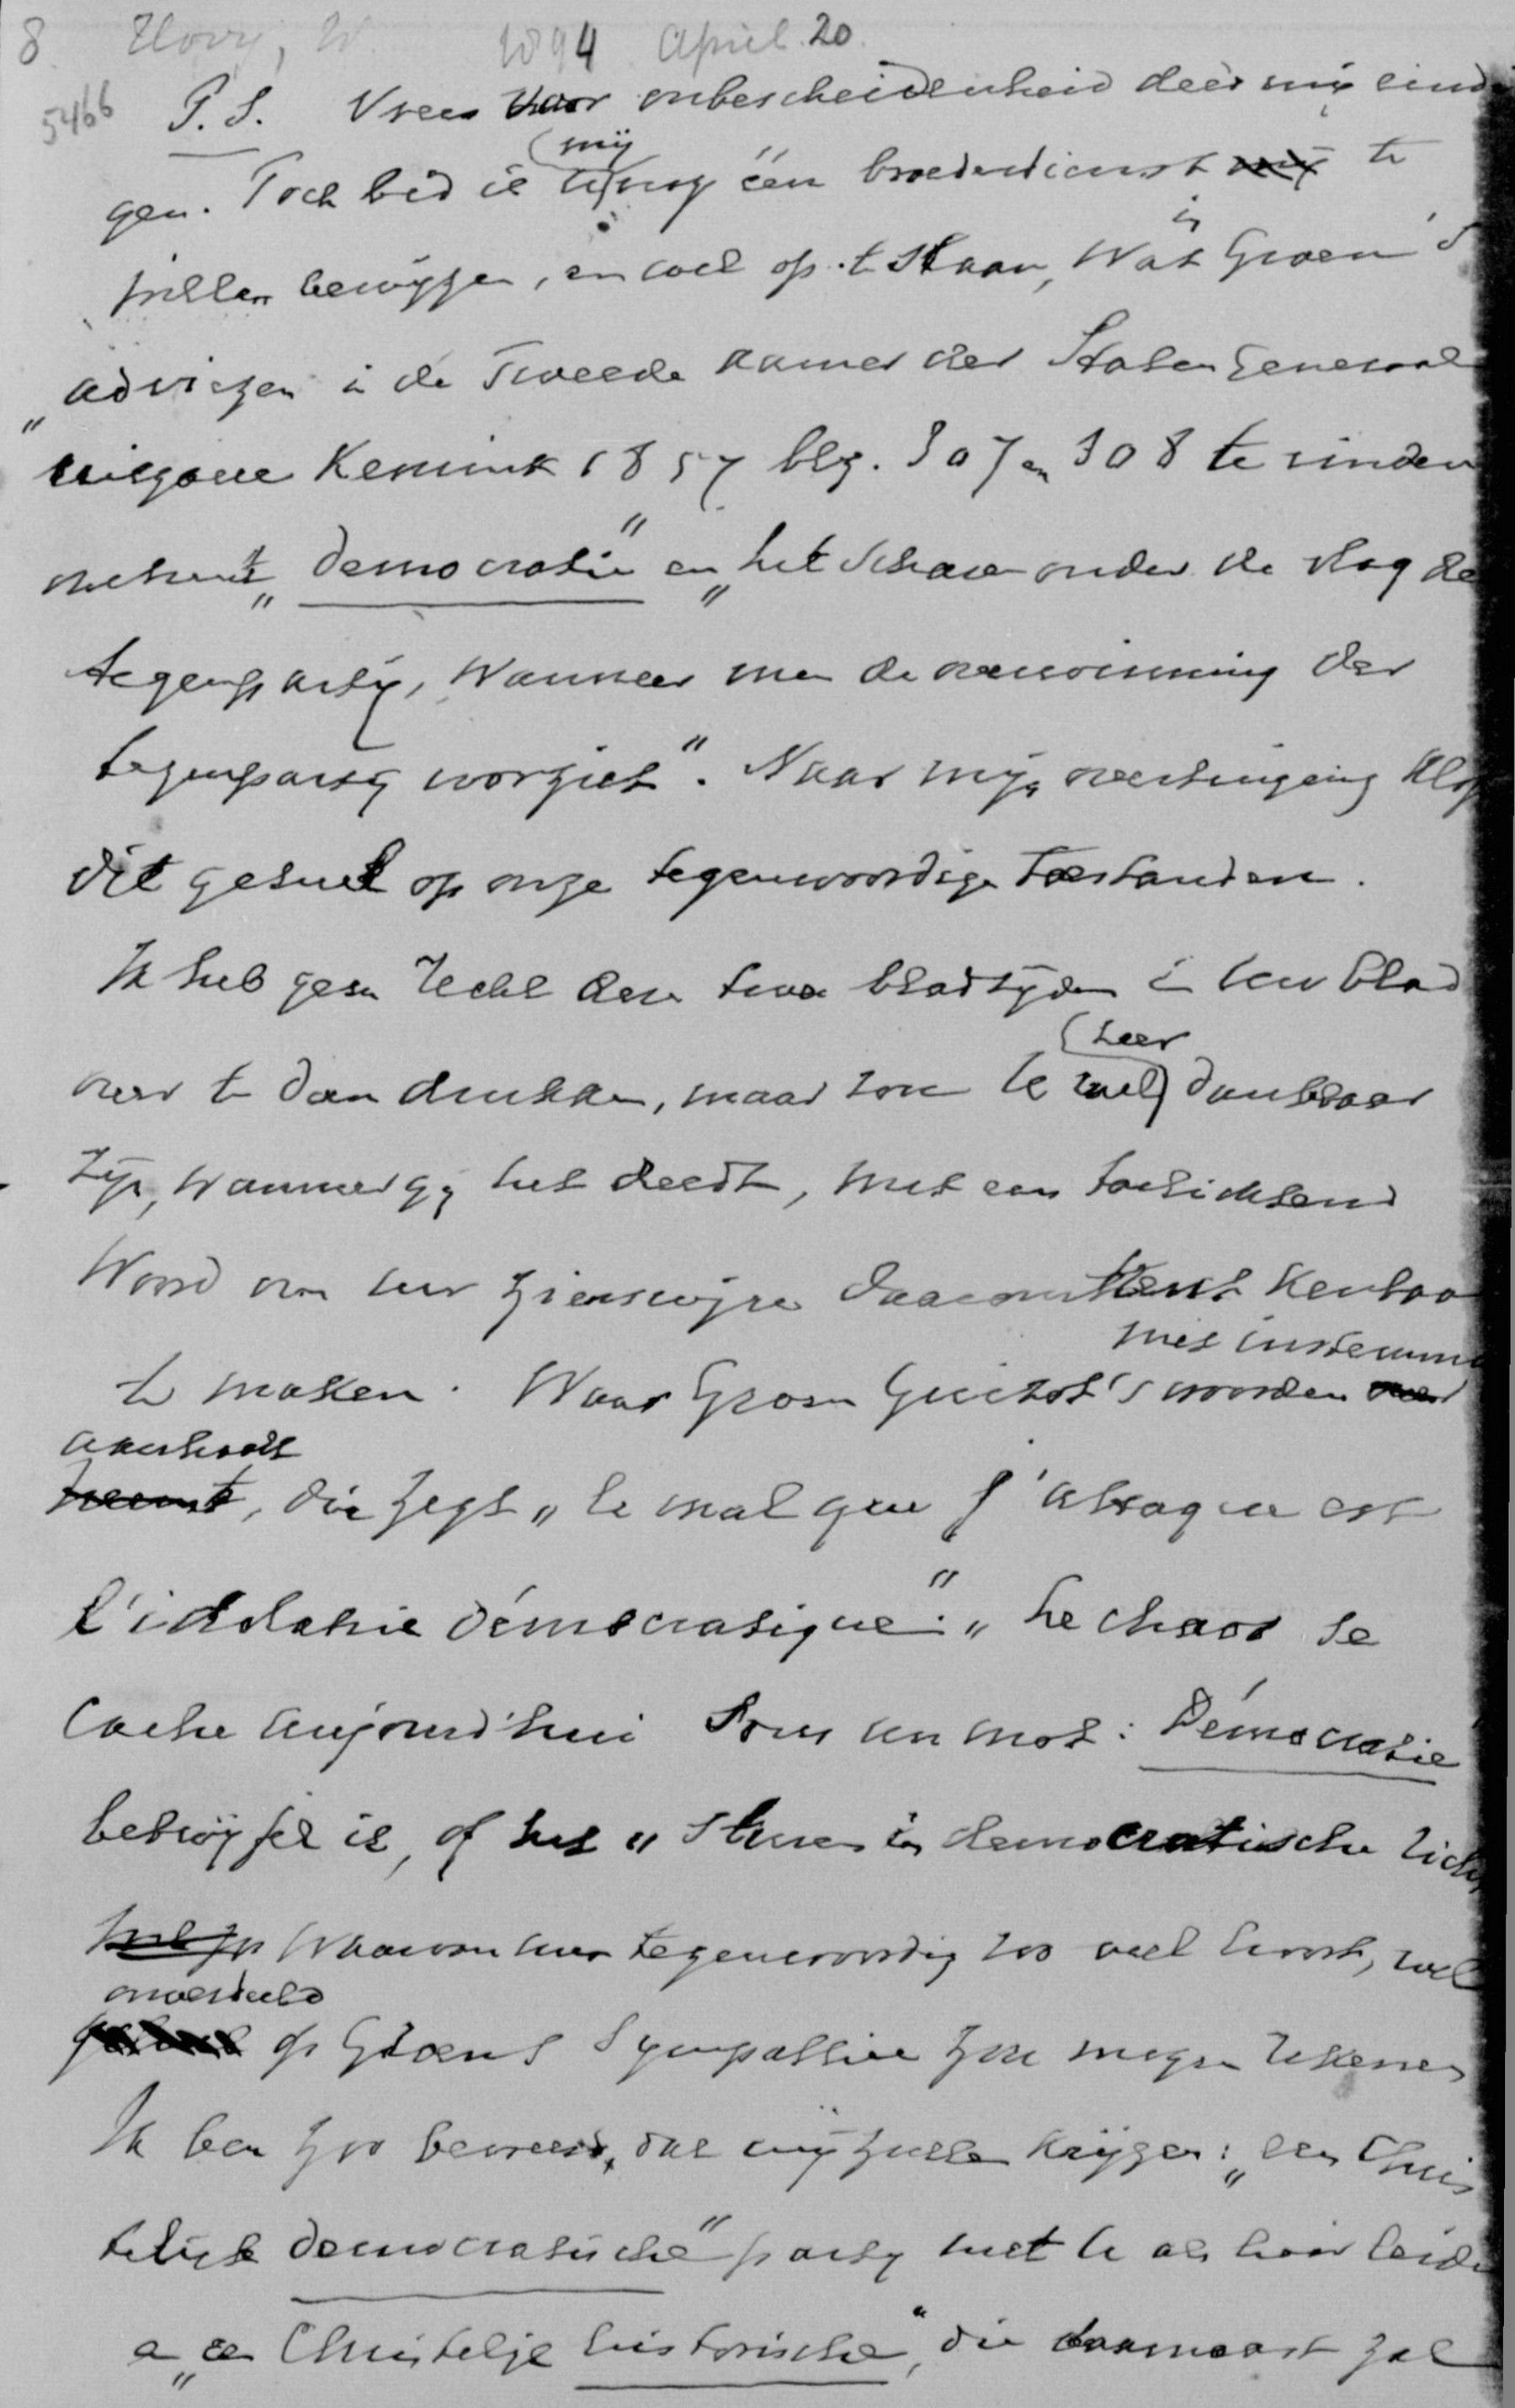 8 Hovy, W. 1894 April 20
5466 P.S. Vrees voor onbescheidenheid deed mij eindi
gen. Toch bid ik U mij nog één broederdienst te
willen bewijzen, en wel op te slaan, Wat in Groen's
"adviezen in de Tweede Kamer der Staten Generaal
uitgave Kemink 1857 blz. 307 en 308 te vinden
omtrent "democratie" en "het scharen onder de vlag de
tegenpartij, Wanneer men de overwinning der
tegenpartij voorziet". Naar mijn overtuiging klop
dit geheel op onze tegenwoordige toestanden.
Ik heb geen recht deze twee bladzijden in Uw blad
over te doen drukken, maar zou U zeer dankbaar
zijn, wanneer gij het deedt, met een toelichtend
Woord om Uw zienswijze daaromtrent kenbaar
te maken. Waar Groen Guizot's woorden met instemmi
aanhaalt, die zegt "le mal que j'attaque est
l'idolatrie démocratique"; "Le chaos se
cache aujourd'hui sous un mot: Démocratie"
betwijfel ik, of het "sturen in democratische richt
waarvan men tegenwoordig zoo veel hoort, wel
onverdeeld op Groens sympathie zou mogen rekenen
Ik ben zoo bevreesd, dat wij zullen krijgen: "een Chris
telijk democratische" partij met U als haar leide
en "een Christelijk historische", die daarnaast zal